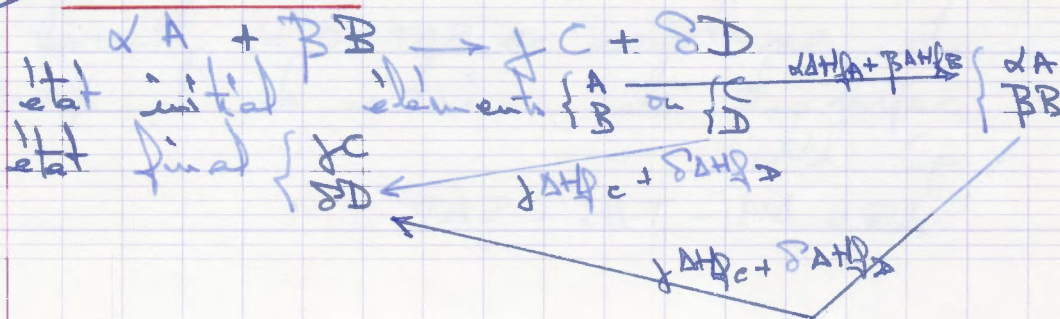 αA + βB → γC + δD
état initial éléments { A B ou { C D
αΔHfA + βΔHfB
{ αA βB
état final { γC δD
γΔHfC + δΔHfD
γΔHfC + δΔHfD